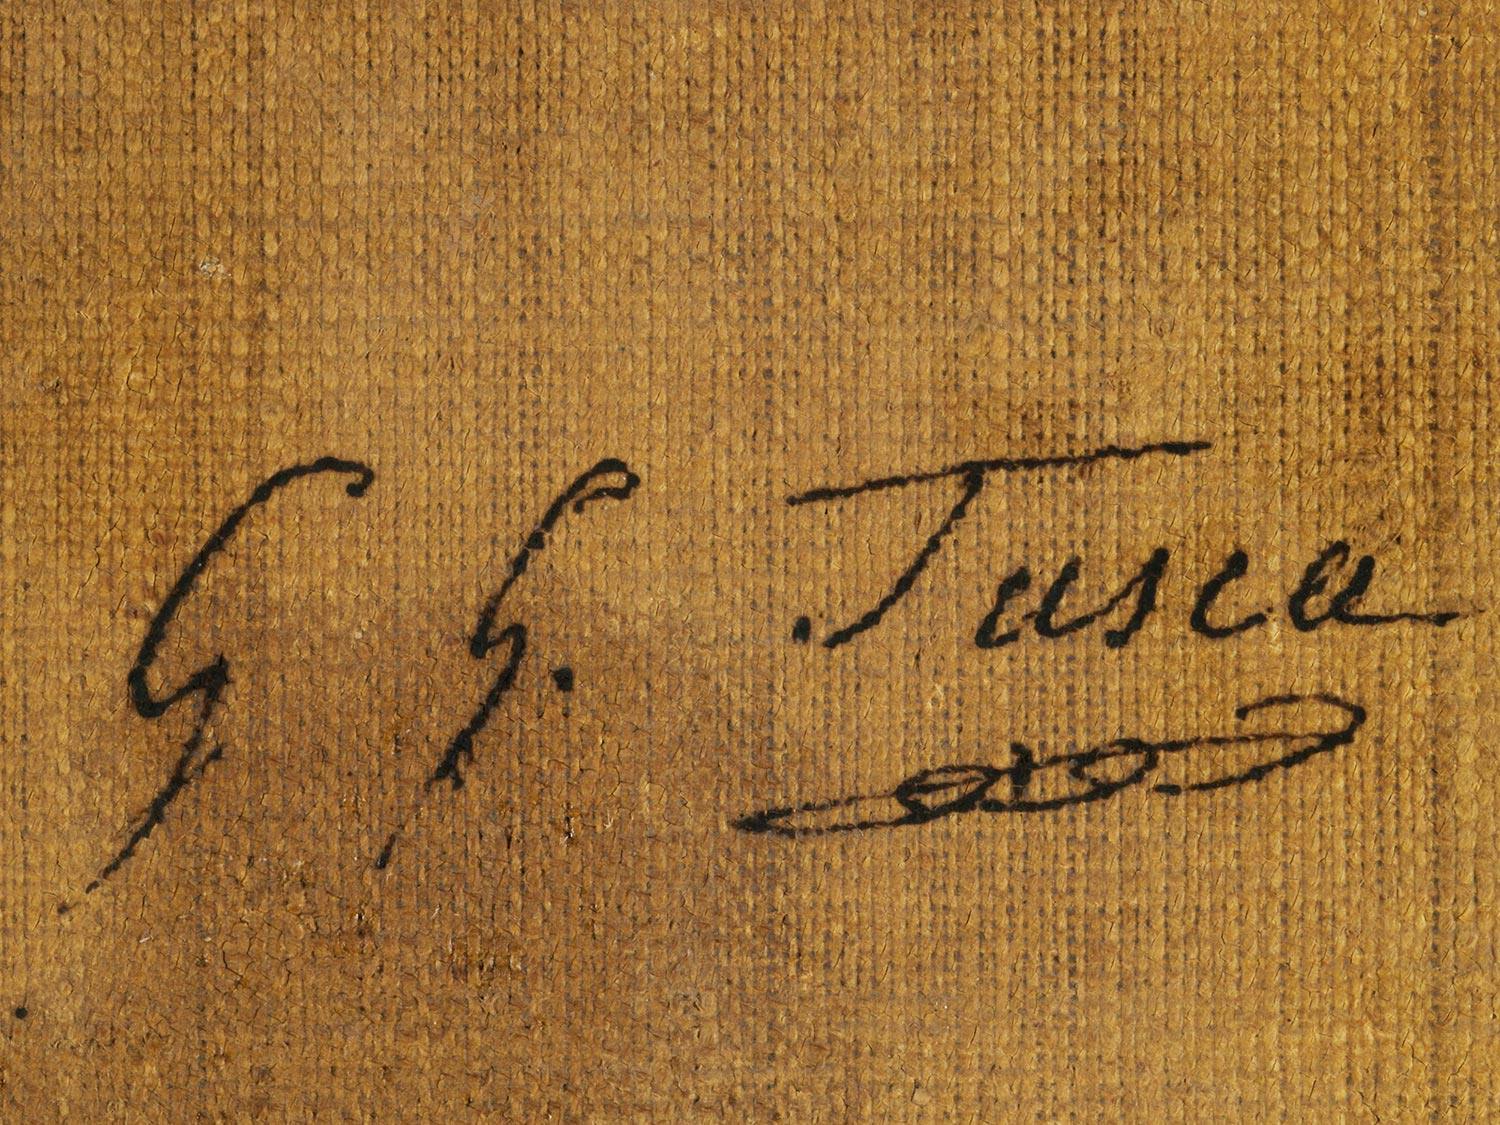 G G. Tasca